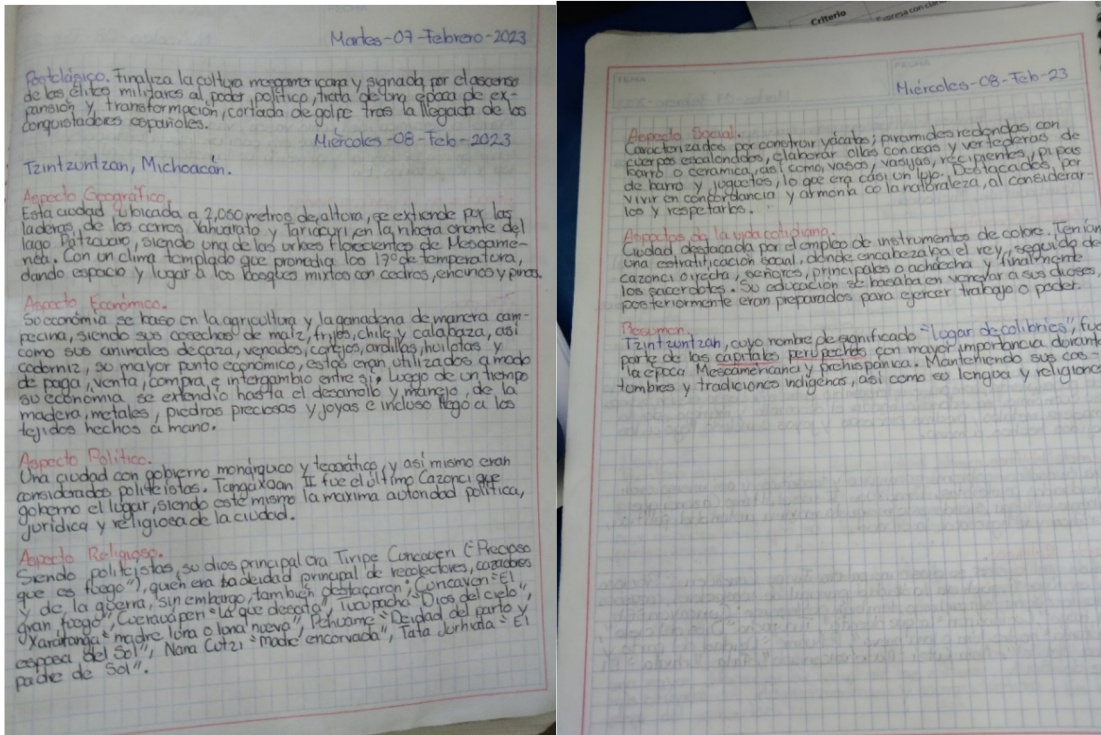 Martes-07-Febrero-2023
Postclásico. Finaliza la cultura mesoamericana y signada por el ascenso
de las élites militares al poder político, trata de una época de ex-
pansión y transformación, cortada de golpe tras la llegada de los
conquistadores españoles.
Miércoles-08-Feb-2023
Tzintzuntzan, Michoacán.
Aspecto Geográfico.
Esta ciudad ubicada a 2,050 metros de altura, se extiende por las
laderas, de los cerros Yahuarato y Tariacuri, en la ribera oriente del
lago Pátzcuaro, siendo una de las urbes florecientes de Mesoamé-
rica. Con un clima templado que promedia los 17° de temperatura,
dando espacio y lugar a los bosques mixtos con cedros, encinos y pinos.
Aspecto Económico.
Su economía se baso en la agricultura y la ganadería de manera cam-
pecina, siendo sus cosechas de maíz, frijol, chile y calabaza, así
como sus animales de caza, venados, conejos, ardillas, huilotas y
codorniz, su mayor punto económico, estas eran utilizados a modo
de paga, venta, compra, e intercambio entre sí, luego de un tiempo
su economía se extendio hasta el desarrollo y manejo, de la
madera, metales, piedras preciosas y joyas e incluso llego a los
tejidos hechos a mano.
Aspecto Político.
Una ciudad con gobierno monárquico y teocrático, y así mismo eran
considerados politeistas. Tangáxoan II fue el último Cazonci que
goberno el lugar, siendo este mismo la maxima autoridad política,
jurídica y religiosa de la ciudad.
Aspecto Religioso.
Siendo politeistas, su dios principal era Tiripe Curicaveri ("Precioso
que es fuego"), quién era la deidad principal de recolectores, cazadores
y de, la guerra, sin embargo, también destacaron; Curicaveri "El
gran fuego", Cueravaperi "La que desata", Tucupacha "Dios del cielo",
Xaratanga "madre luna o luna nueva", Pehuame "Deidad del parto y
esposa del Sol", Nana Cutzi "madre encorvada", Tata Jurhiata "El
padre de Sol".
Criterio
FECHA
Miércoles-08-Feb-23
Aspecto Social.
Caracterizados por construir yácatas; piramides redondas con
cuerpos escalonados, elaborar ollas con asas y vertederas de
barro o ceramica, así como, vasos, vasijas, recipientes, pipas
de barro y juguetes, lo que era casi un lujo. Destacados, por
vivir en concordancia y armonía co la naturaleza, al considerar-
los y respetarlos.
Aspectos de la vida cotidiana.
Ciudad destacada por el empleo de instrumentos de cobre. Tenían
una estratificación social, donde encabezaba el rey, seguido de
cazonci directa, señores, principales o achaecha y finalmente
los sacerdotes. Su educación se basaba en venerar a sus dioses,
posteriormente eran preparados para ejercer trabajo o poder.
Resumen.
Tzintzuntzan, cuyo nombre de significado "lugar de colibríes", fue
parte de las capitales perupechas con mayor importancia durante
la época Mesoamericana y prehispánica. Manteniendo sus cos-
tumbres y tradiciones indígenas, así como su lengua y religiones